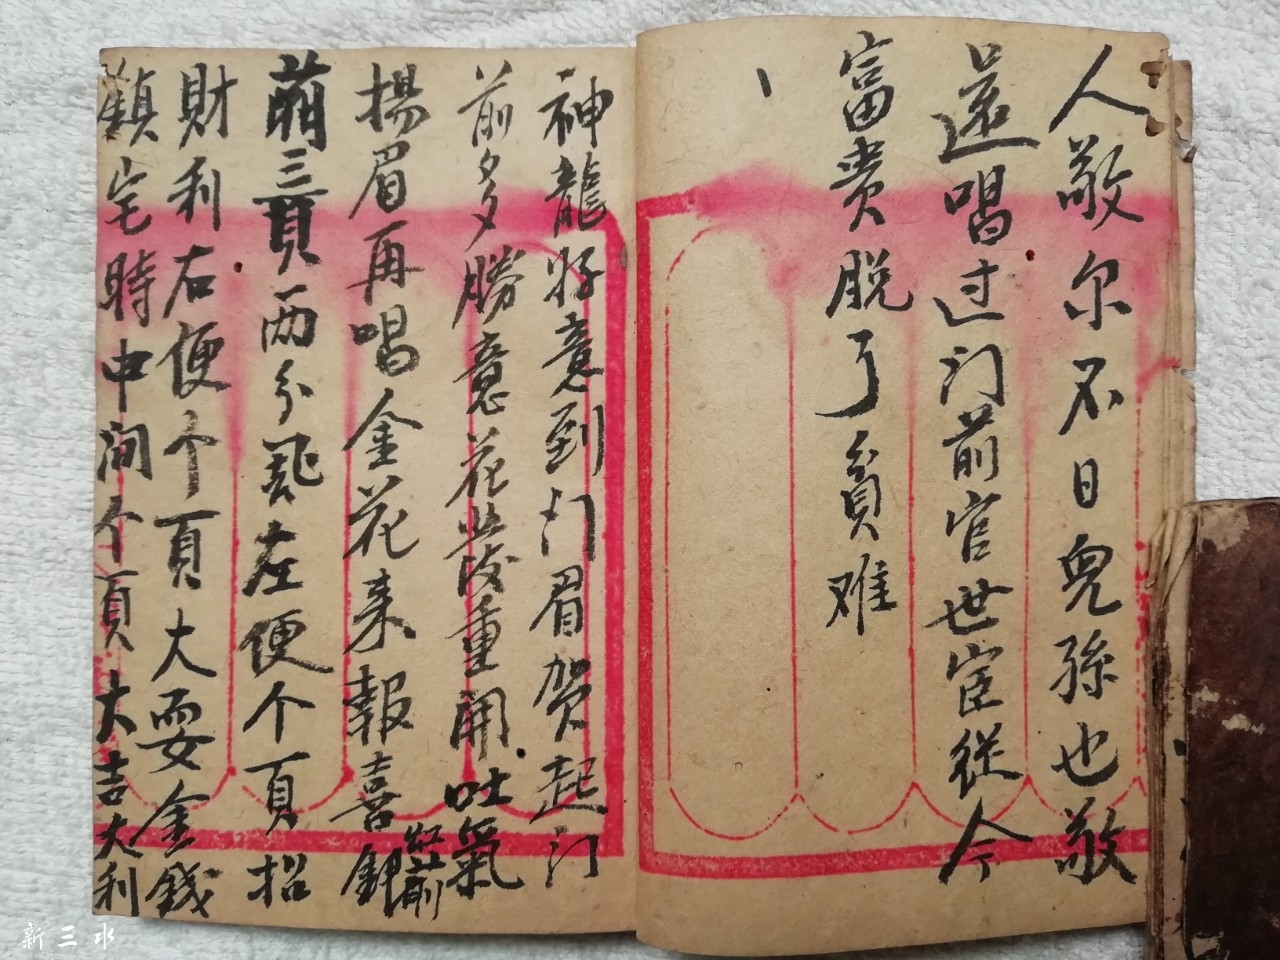 人敬尔不日兒孫也敬
還唱过门前官世宦從今
富贵脱了貧难
神龍好意到门眉贺起门
前多勝意花发重開吐氣
揚眉再唱金花来報喜
红前
三頁两分 左便个頁招
財利右便个頁大耍金錢
鎮宅時中间个頁大吉大利
新三水